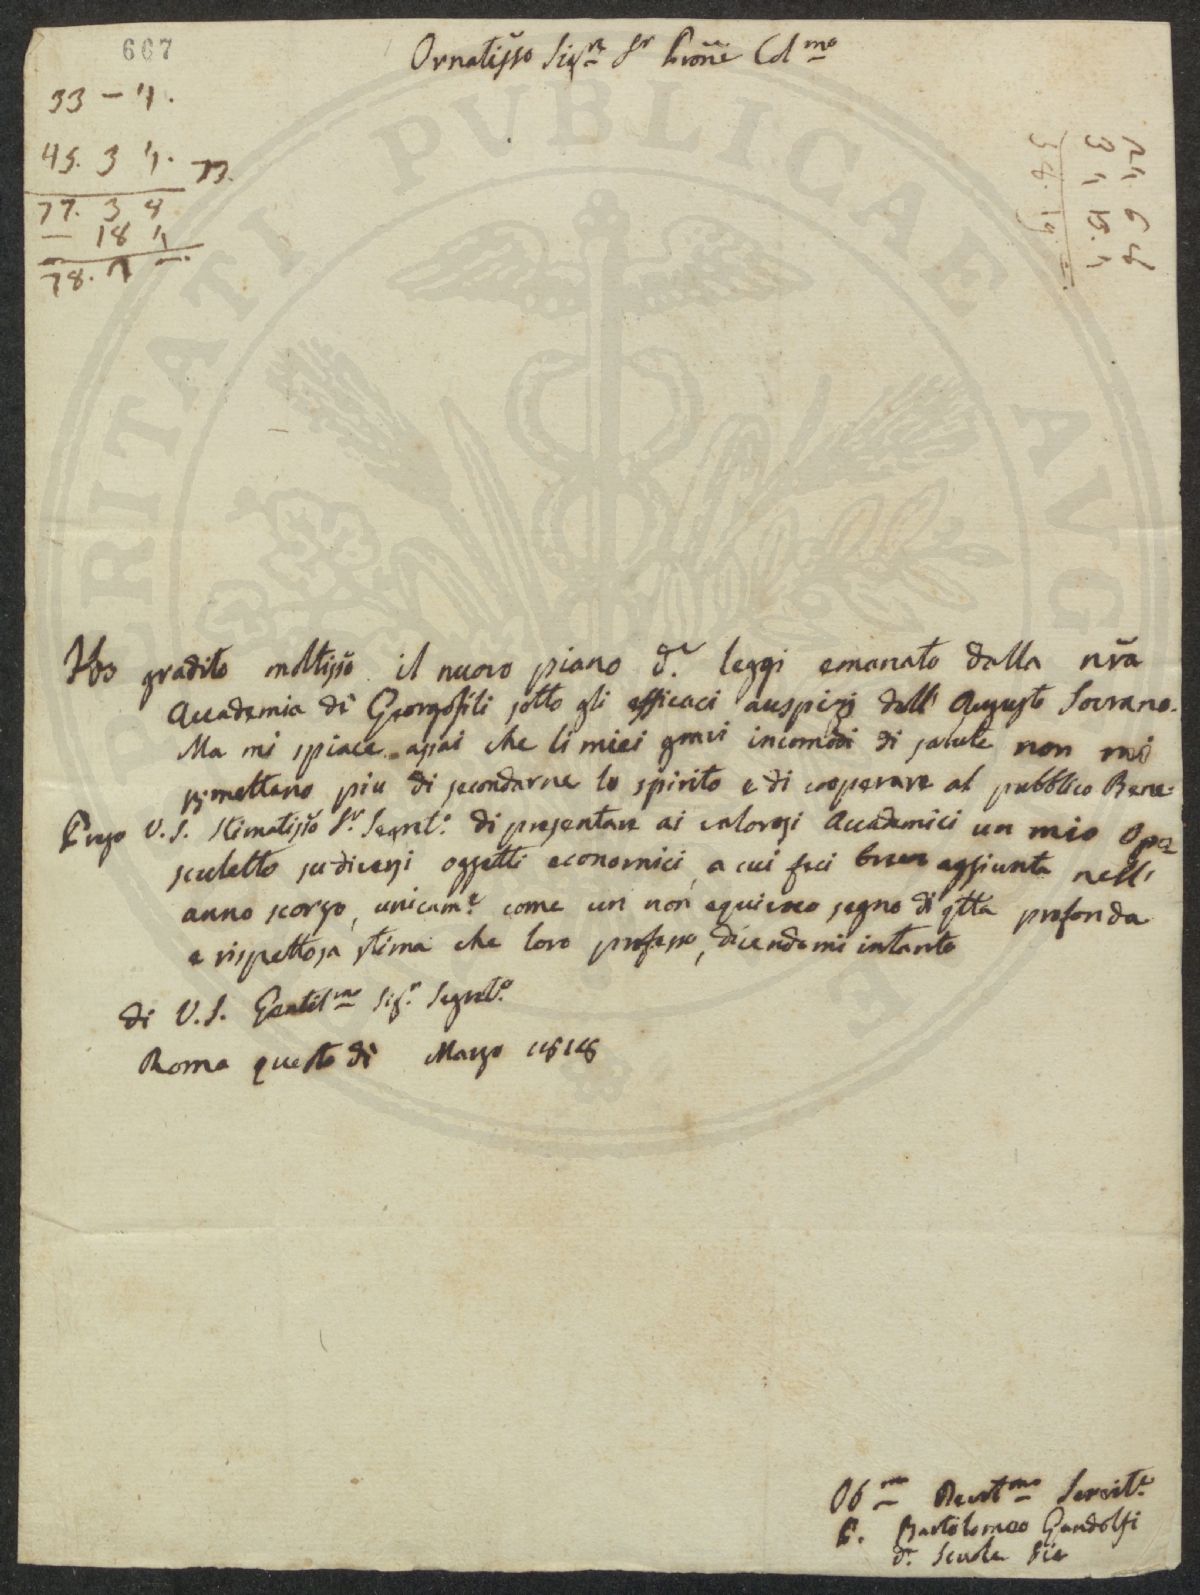 607
Ornatisso Sigre Sr Prõne Colmo
33 – 4.
45. 3 4. 73.
77. 3 8
– 18 4
78. 1 –.
21 6 8
3 1 15. 1
38. 19
PROSPERITATI PUBLICAE AVG
Ho gradito moltisso il nuovo piano d.e leggi emanato dalla nrã
Accademia di Georgofili sotto gli efficaci auspizj dell' Augusto Sovrano.
Ma mi spiace assai che li miei gravi incomodi di salute non mi
permettano piu di secondarne lo spirito e di cooperare al pubblico Bene.
Prego V. S. Stimatisso Sr. Segret.o di presentare ai valorosi Accademici un mio Opu
scoletto su diversi oggetti economici, a cui feci breve aggiunta nell'
anno scorso, unicam.e come un non equivoco segno di qtta profonda
e rispettosa stima che loro professo, dicendomi intanto
di V. S. Gentilmo Sigr. Segret.o
Roma questo dì Marzo 1818
Obmo Devotmo Servit.e
P. Bartolomeo Gandolfi
d.e Scuole Pie